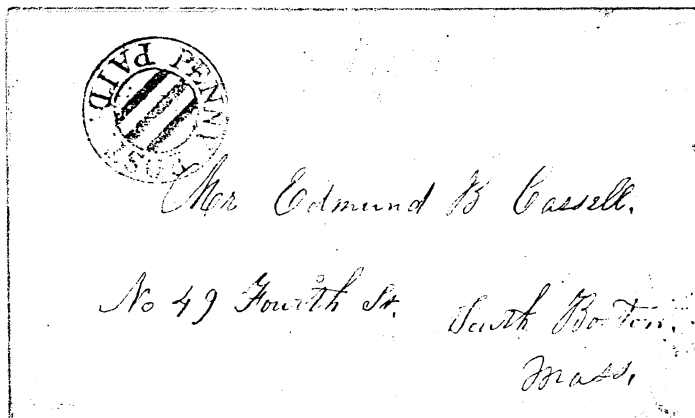 PENNY POST PAID.
Mr Edmund B Cassell.
No 49 Fourth St. South Boston.
Mass.